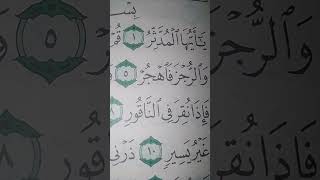 بِسْـ
يَٰٓأَيُّهَا ٱلْمُدَّثِّرُ ١ قُمْ
وَٱلرُّجْزَ فَٱهْجُرْ ٥
فَإِذَا نُقِرَ فِي ٱلنَّاقُورِ ٨
غَيْرُ يَسِيرٍ ١٠ ذَرْنِي